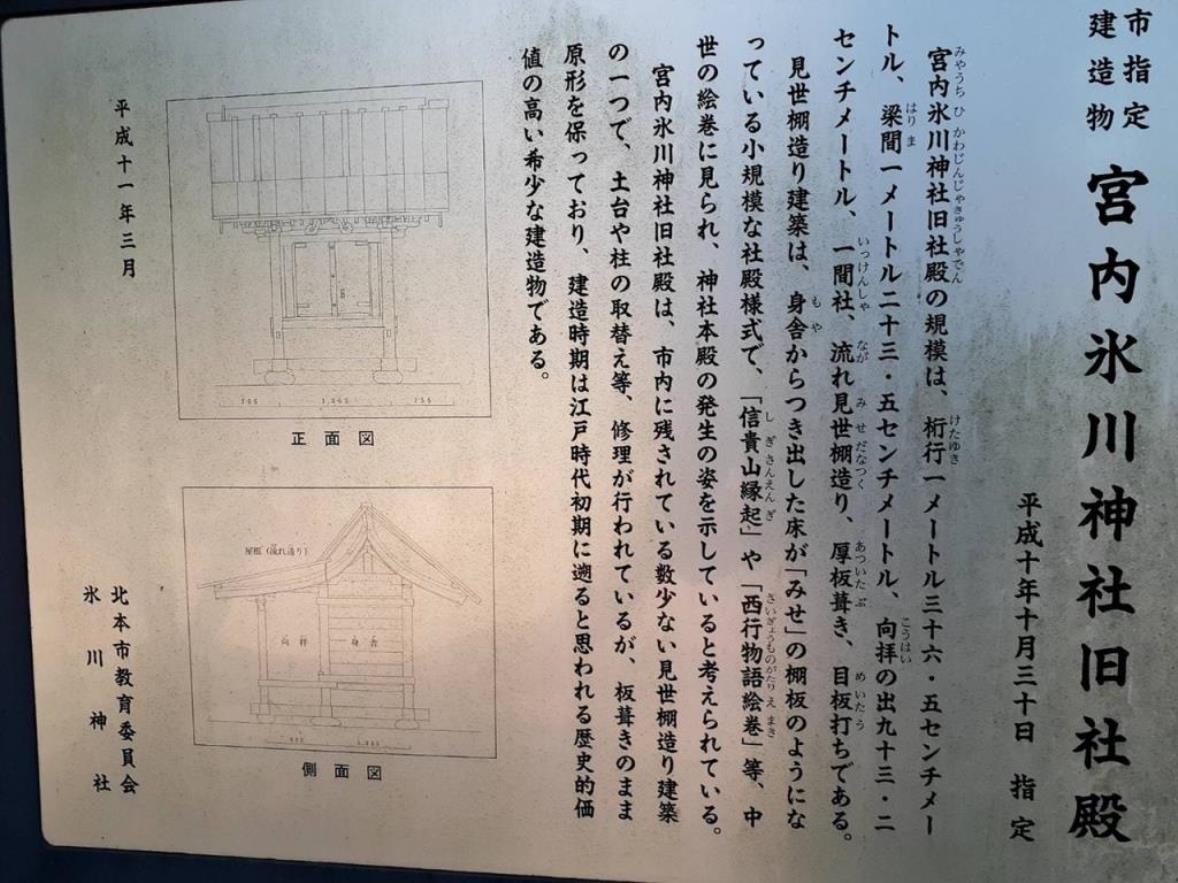 市指定
建造物
宮内氷川神社旧社殿
平成十年十月三十日　指定
宮内氷川神社旧社殿の規模は、桁行一メートル三十六・五センチメー
トル、梁間一メートル二十三・五センチメートル、向拝の出九十三・二
センチメートル、一間社、流れ見世棚造り、厚板葺き、目板打ちである。
見世棚造り建築は、身舎からつき出した床が「みせ」の棚板のようにな
っている小規模な社殿様式で、「信貴山縁起」や「西行物語絵巻」等、中
世の絵巻に見られ、神社本殿の発生の姿を示していると考えられている。
宮内氷川神社旧社殿は、市内に残されている数少ない見世棚造り建築
の一つで、土台や柱の取替え等、修理が行われているが、板葺きのまま
原形を保っており、建造時期は江戸時代初期に遡ると思われる歴史的価
値の高い希少な建造物である。
正面図
屋根（流れ造り）
向拝
身舎
側面図
平成十一年三月
北本市教育委員会
氷川神社